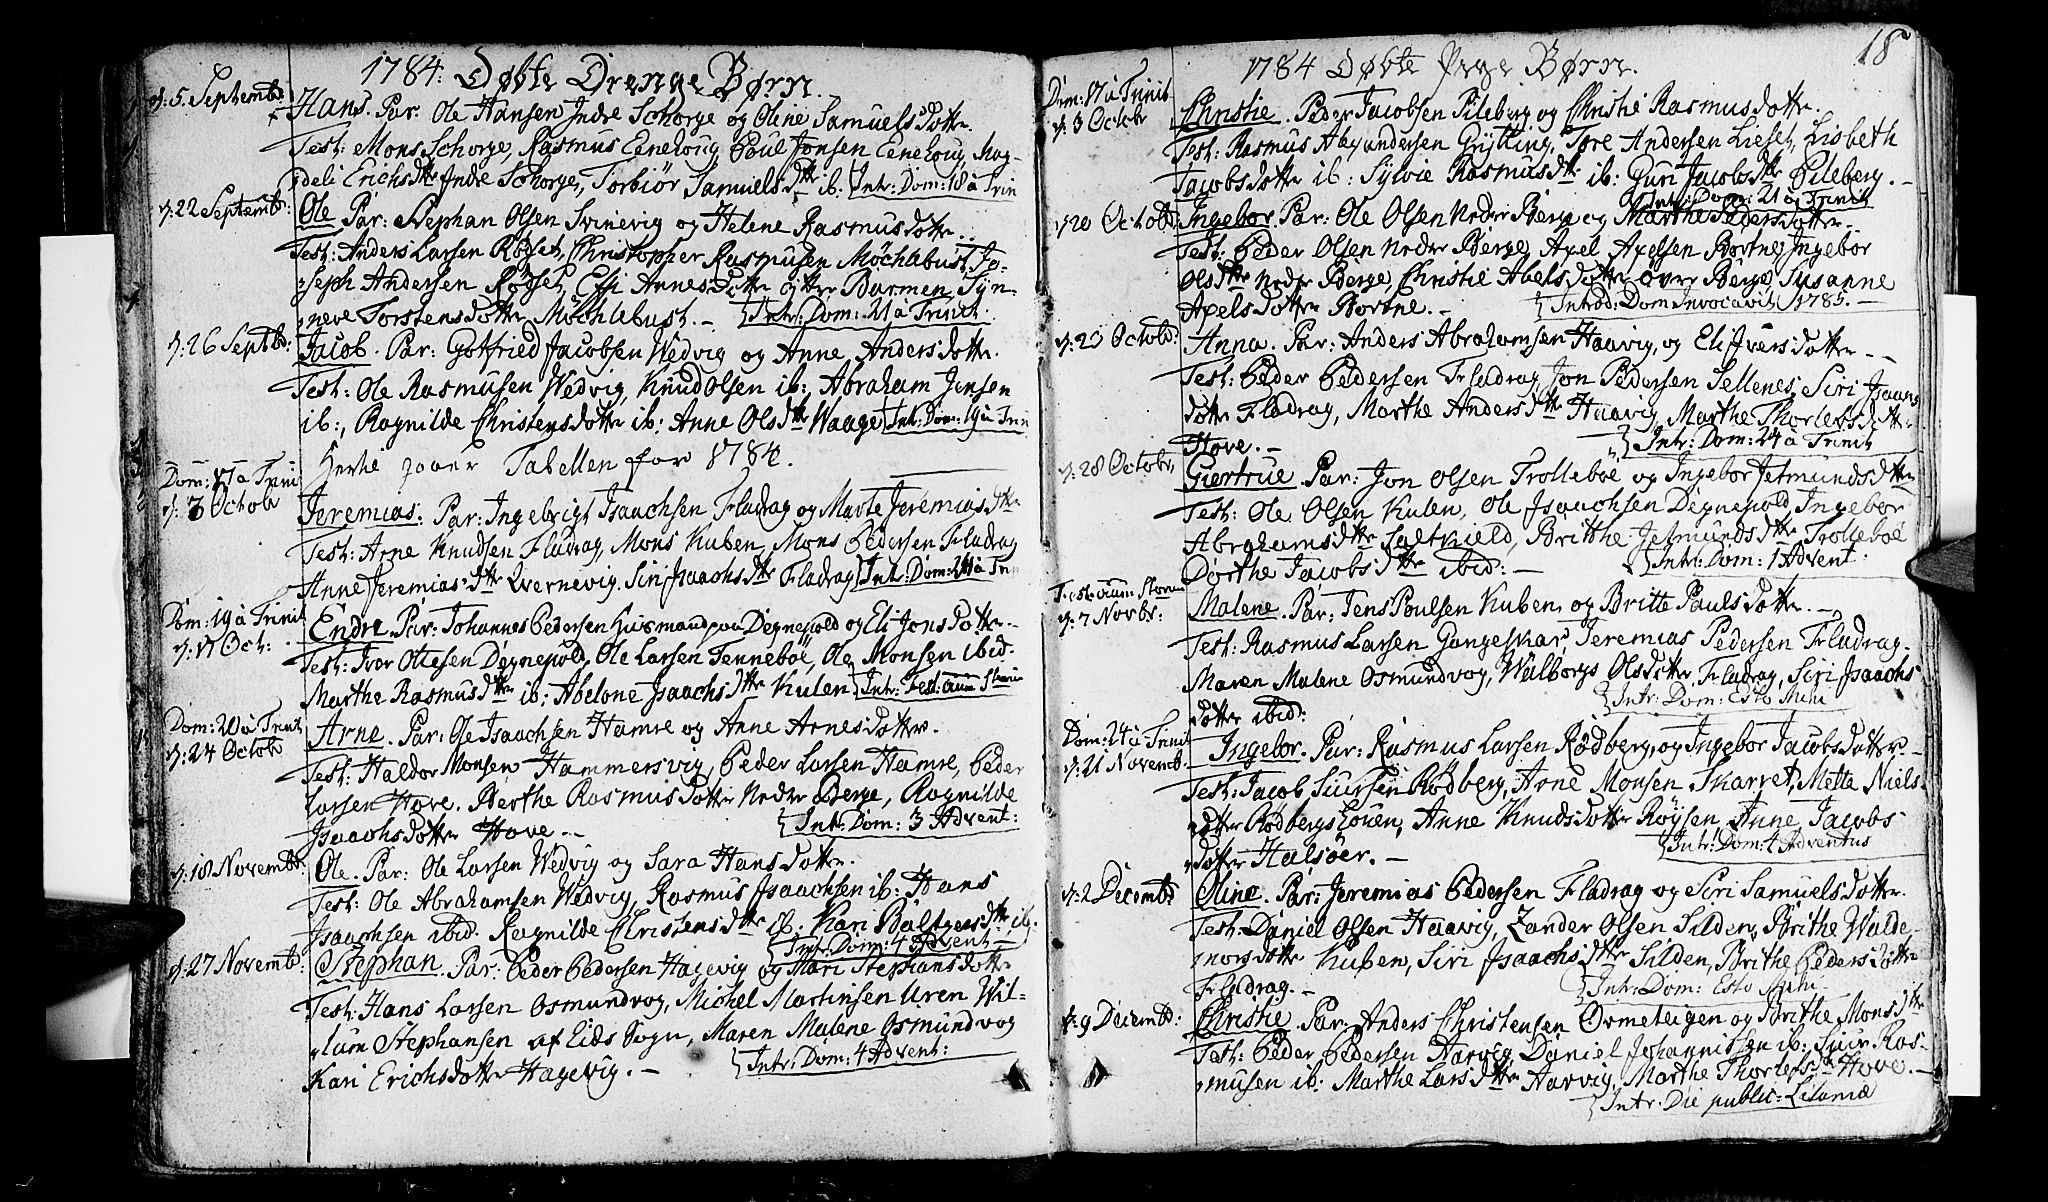 1784. Døbte Drenge Børn.
d: 5. Septemb: Hans. Par: Ole Hansen Indre Schorge og Oline Samuelsdotter.
Test: Mons Schorge, Rasmus Eenehoug, Poul Jonsen Eenehoug, Mag-
deli Erichsdtr Indre Schorge, Torbiør Samuelsdtr ib. Intr: Dom: 18 à Trin
d: 22 Septemb: Ole Par: Stephan Olsen Svinevig og Helene Rasmusdotter.
Test: Anders Larsen Røset, Christopher Rasmusen Møchlebust, Jo-
seph Andersen Røset, Elsi Annesdotter ytter Burmen, Syn-
neve Torstensdotter Møchlebust. - Intr: Dom: 21 à Trinit.
d: 26 Septb: Jacob. Par: Gotfried Jacobsen Wedvig og Anne Andersdotter.
Test: Ole Rasmusen Wedvig, Knud Olsen ib:, Abraham Jensen
ib:, Ragnilde Christensdotter ib: Anne Olsdtr Waage Intr: Dom: 19 à Trin
Hertil gaaer Tabellen for 1784.
Dom: 17 à Trinit
d: 3 Octob Jeremias. Par: Ingebrigt Isaachsen Fladrag og Marte Jeremiasdtr
Test: Arne Knudsen Fladrag, Mons Kuben, Mons Pedersen Fladrag
Anne Jeremiasdtr Qvernevig. Siri Isaachsdtr Fladrag Intr: Dom: 21 à Trin
Dom: 19 à Trinit
d: 17 Oct: Endre. Par: Johannes Pedersen Huusmand paa Degnepold og Eli Jonsdotter.
Test: Iver Ottesen Degnepold, Ole Larsen Tennebøe, Ole Monsen ibid.
Marthe Rasmusdtr ib: Abelone Isaachsdtr Kulen Intr: Fest: omn Storum
Dom: 20 à Trinit
d: 24 Octob Arne. Par: Ole Isaachsen Hamre og Anne Arnesdotter.
Test: Haldor Monsen Hammersvig, Peder Larsen Hamre, Peder
Larsen Hove. Berthe Rasmusdotter Nedre Berge, Ragnilde
Isaachsdotter Hove - Intr: Dom: 3 Advent:
d: 18 Novembr: Ole. Par: Ole Larsen Wedvig og Sara Hansdotter.
Test: Ole Abrahamsen Wedvig, Rasmus Isaachsen ib: Hans
Isaachsen ibid. Ragnilde Christensdtr ib. Kari Baltzersdtr ib.
Intr: Dom: 4 Advent -
d: 27 Novemb: Stephan. Par: Peder Pedersen Hagevig og Mari Stephansdotter
Test: Hans Larsen Osmundvog, Michel Martinsen Uren Wil-
lum Stephansen af Eids Sogn, Maren Malene Osmundvog
Kari Erichsdotter Hagevig. - Intr: Dom: 4 Advent:
18
1784 Døbte Pige Børn.
Dom: 17 à Trinit
d: 3 Octobr Christie. Peder Jacobsen Pileberg og Christie Rasmusdotter.
Test: Rasmus Alexandersen Grytting, Tore Andersen Lieset, Lisbeth
Jacobsdotter ib: Sylvie Rasmusdtr ib: Guri Jacobsdtr Pileberg. -
Intr: Dom: 21 à Trinit
d 20 Octob: Ingebor. Par: Ole Olsen Nedre Berge og Marthe Pedersdotter.
Test: Peder Olsen Nedre Berge, Axel Axelsen Bortne, Ingebor
Olsdtr Nedre Berge, Christie Abelsdotter Øvre Berge, Susanne
Axelsdotter Bortne. - Introd: Dom Invocavit 1785. -
d: 23 Octob: Anna. Par: Anders Abrahamsen Haavig, og Eli Iversdotter. -
Test: Peder Pedersen Fladrag, Jon Pedersen Sellenes, Siri Isaans
dotter Fladrag, Marthe Andersdtr Haavig, Marthe Thorlefsdotter
Hove. - Intr: Dom: 24 à Trinit
d: 28 Octobr, Giertrue. Par: Jon Olsen Trolleboe og Ingebor Jetmundsdtr
Test: Ole Olsen Kulen, Ole Isaachsen Degnepold, Ingebor
Abrahamsdtr Saltkield, Britthe Jetmundsdtr Trolleboe
Dorthe Jacobsdtr ibid: - Intr: Dom: 1 Advent:
Festo omn Storum
d: 7 Novbr: Malene. Par: Jens Poulsen Kuben, og Britte Paulsdotter. -
Test: Rasmus Larsen Gangeskar, Jeremias Pedersen Fladrag.
Maren Malene Osmundvog, Walborgs Olsdotter, Fladrag, Siri Isaachs
dotter ibid: Intr: Dom: Esto Mihi
Dom: 24 à Trinit
d: 21 Novemb. Ingebor. Par: Rasmus Larsen Rødberg, og Ingebor Jacobsdotter -
Test: Jacob Siursen Rødberg, Arne Monsen Skarret, Mette Niels-
dotter Rødbergs Løuen, Anne Knudsdotter Røysen, Anne Jacobs-
dotter Halsøer. - Intr: Dom: 4 Adventus
d: 2 Decembr Oline. Par: Jeremias Pedersen Fladrag og Siri Samuelsdotter.
Test: Daniel Olsen Haavig, Zander Olsen Silden, Brithe Walde-
morsdotter Kuben, Siri Isaachsdtr Silden, Brithe Pedersdotter
Fladrag. - Intr: Dom: Esto Mihi
d: 9 Decemb: Christie. Par: Anders Christensen Ørmeteigen og Brithe Monsdtr
Test: Peder Pedersen Aarvig Daniel Johannissen ib: Siur Ras-
musen ib: Marthe Larsdtr Aarvig, Marthe Thorlefsdtr Hove. -
Intr. Die public: